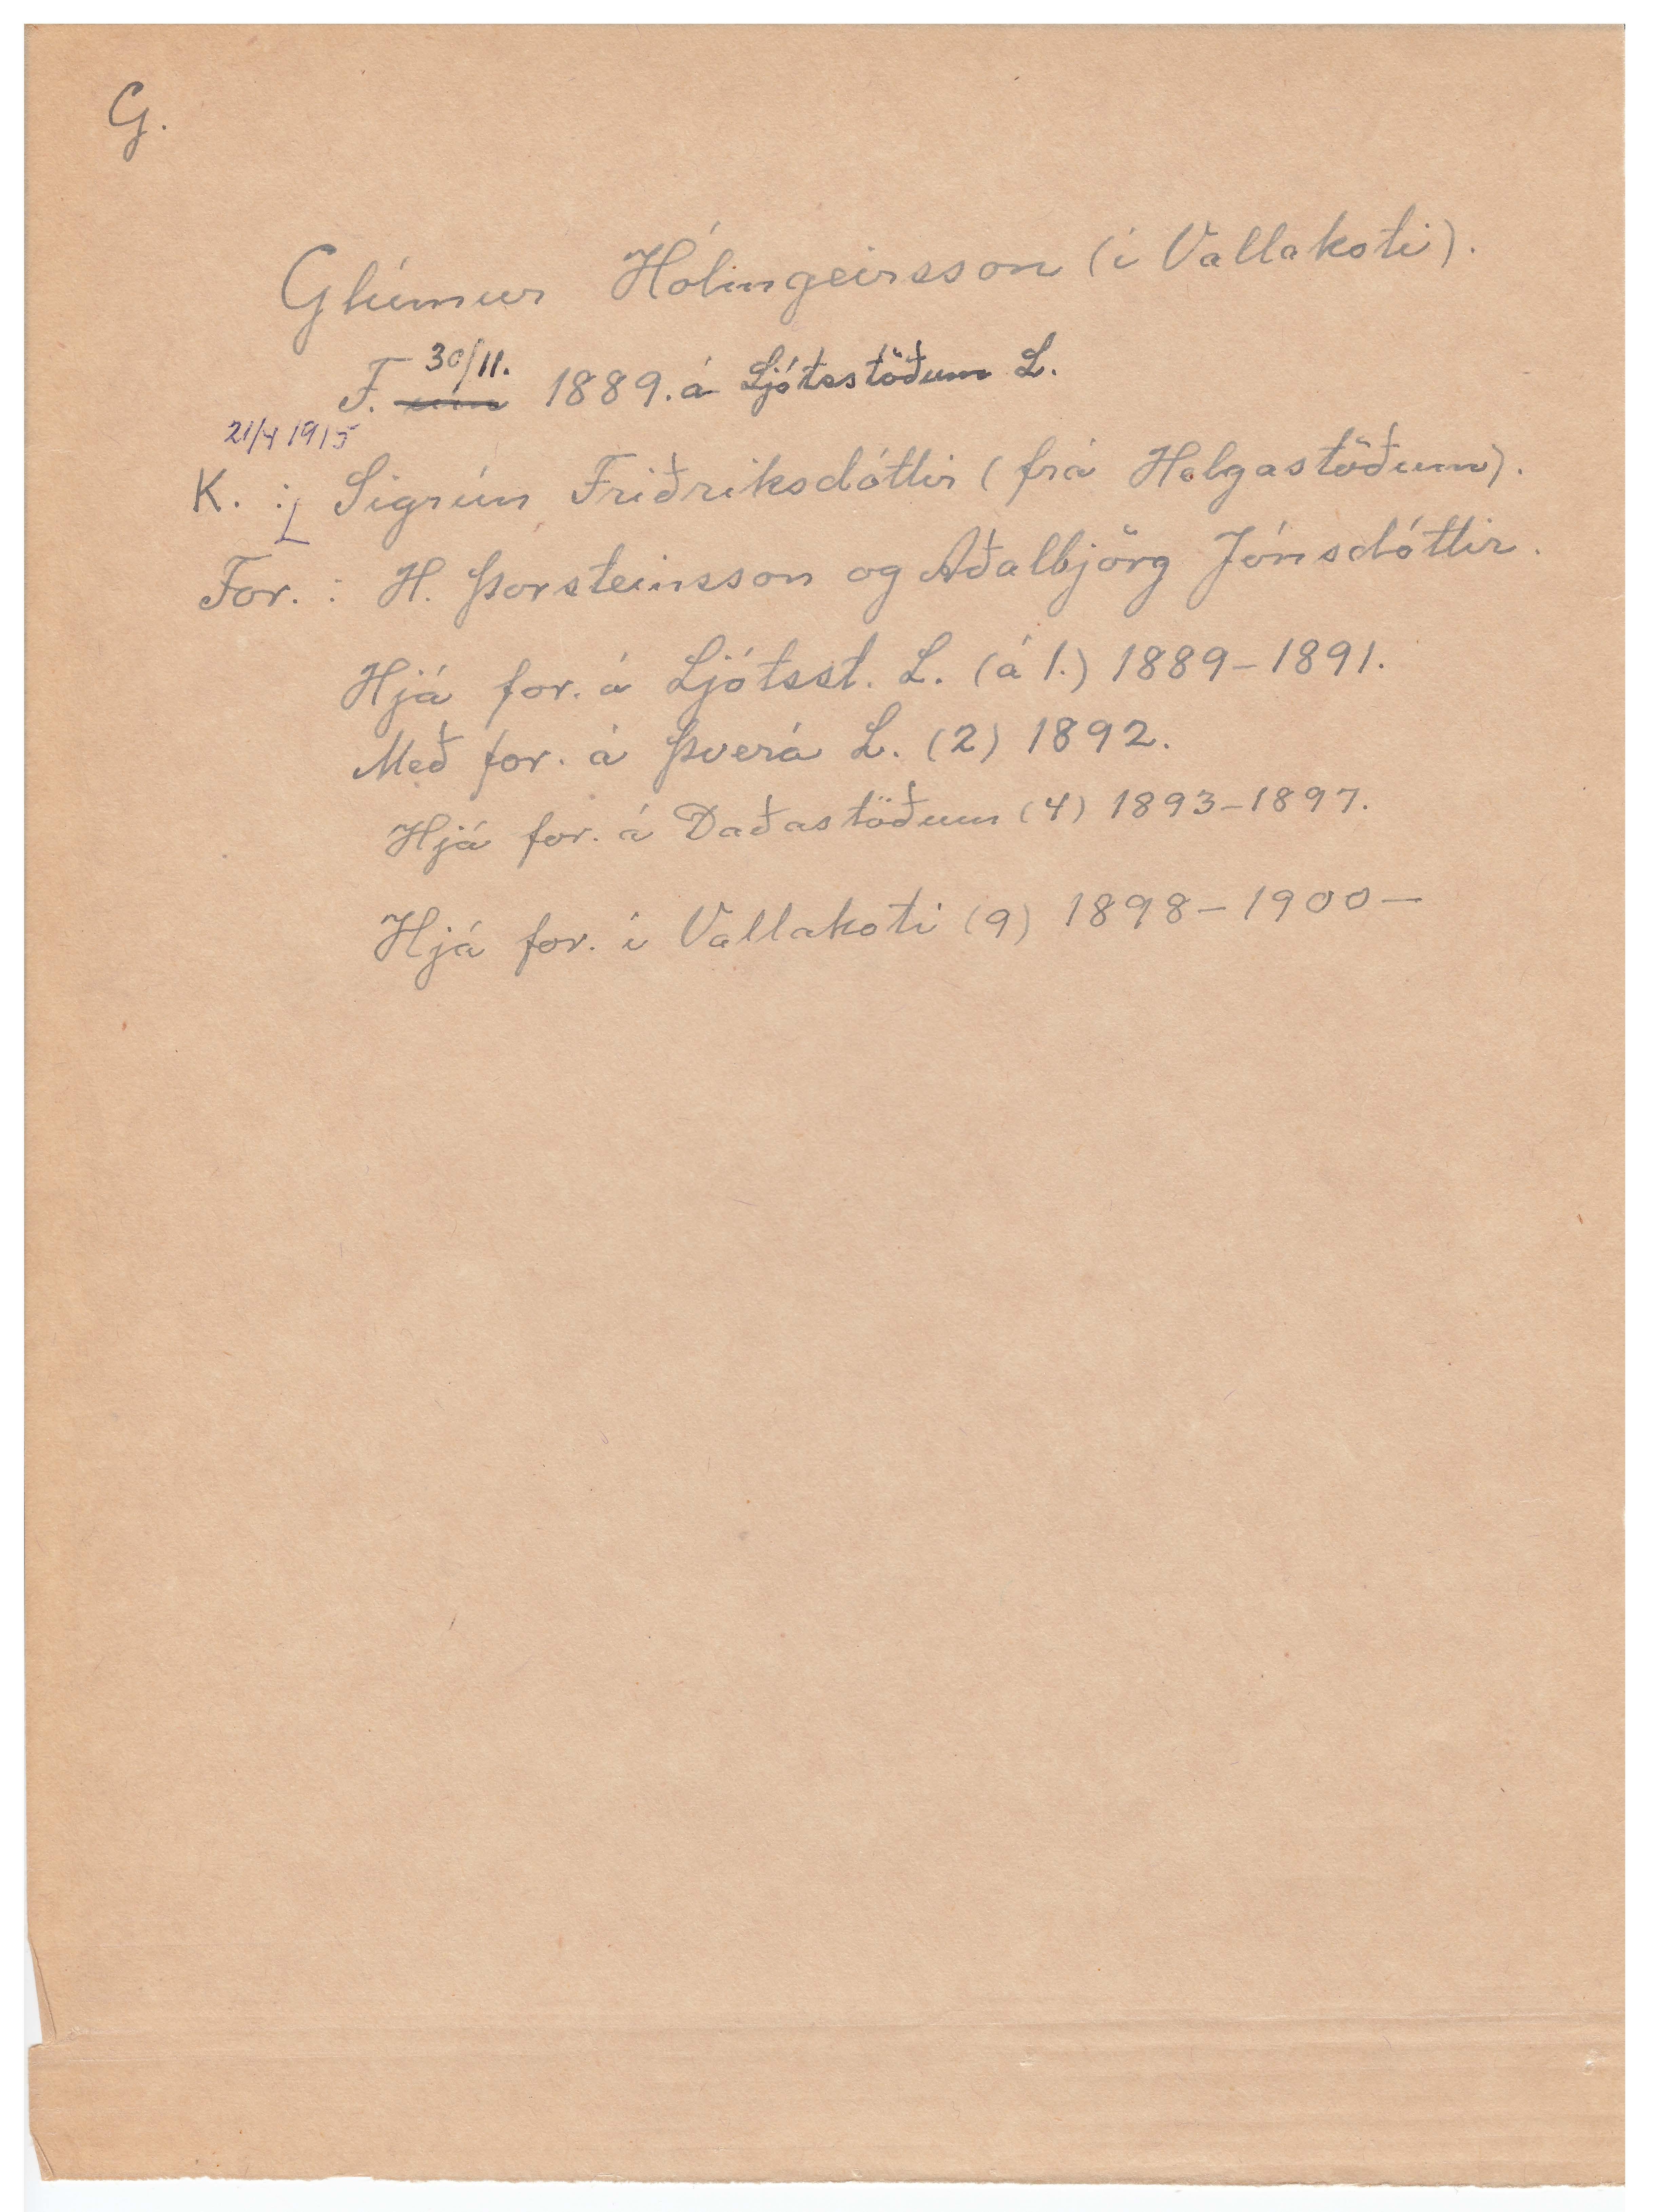 G.
Glúmur Hólmgeirsson (í Vallakoti).
30/11.
F. 1889. á Ljótsstöðum L.
21/4 1915
K. : Sigrún Friðriksdóttir (frá Helgastöðum).
For. : H. Þorsteinsson og Aðalbjörg Jónsdóttir.
Hjá for. á Ljótsst. L. (á 1.) 1889-1891.
Með for. á Þverá L. (2) 1892.
Hjá for. á Daðastöðum (4) 1893-1897.
Hjá for. í Vallakoti (9) 1898-1900-